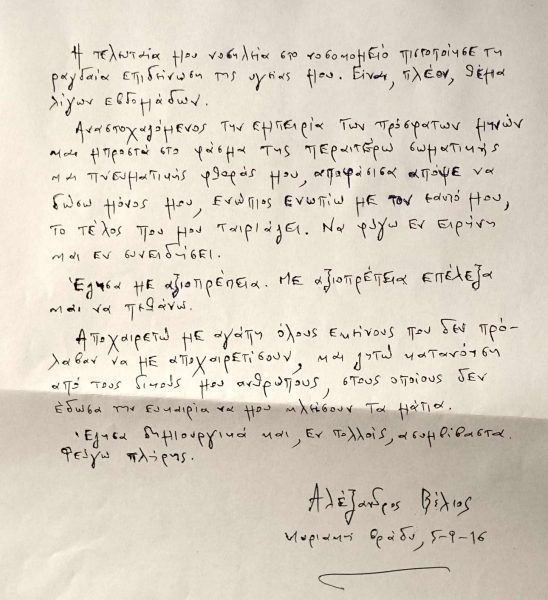 Η τελευταία μου νοσηλεία στο νοσοκομείο πιστοποίησε τη
ραγδαία επιδείνωση της υγείας μου. Είναι, πλέον, θέμα
λίγων εβδομάδων.
Αναστοχαζόμενος την εμπειρία των πρόσφατων μηνών
και μπροστά στο φάσμα της περαιτέρω σωματικής
και πνευματικής φθοράς μου, αποφάσισα απόψε να
δώσω μόνος μου, ενώπιος ενωπίω με τον εαυτό μου,
το τέλος που μου ταιριάζει. Να φύγω εν ειρήνη
και εν συνειδήσει.
Έζησα με αξιοπρέπεια. Με αξιοπρέπεια επέλεξα
και να πεθάνω.
Αποχαιρετώ με αγάπη όλους εκείνους που δεν πρό-
λαβαν να με αποχαιρετίσουν, και ζητώ κατανόηση
από τους δικούς μου ανθρώπους, στους οποίους δεν
έδωσα την ευκαιρία να μου κλείσουν τα μάτια.
Έζησα δημιουργικά και, εν πολλοίς, ασυμβίβαστα.
Φεύγω πλήρης.
Αλέξανδρος Βέλιος
Κυριακή βράδυ, 5-9-16